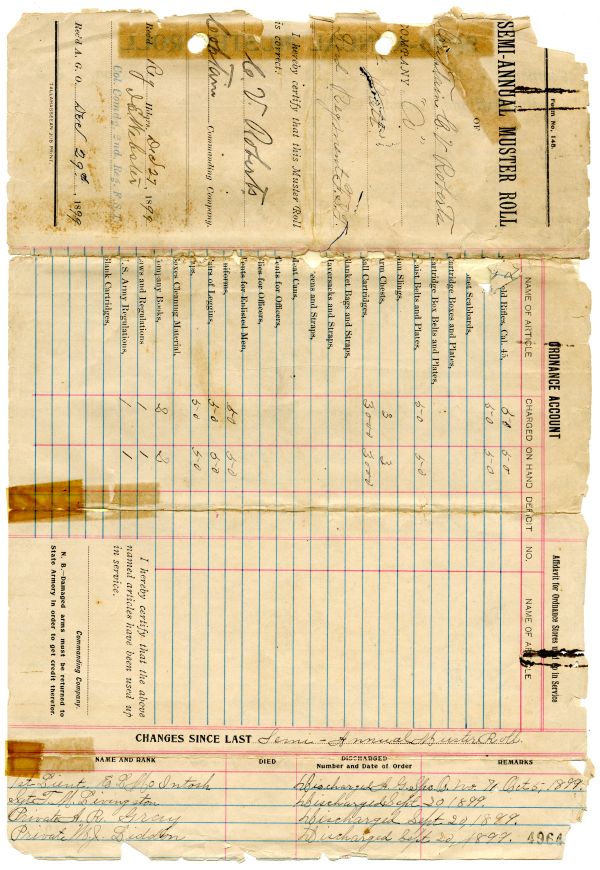 Form No. 148.
SEMI-ANNUAL MUSTER ROLL
OF
Captain C. V. Roberts
COMPANY "C"
2nd Regiment F.S.T.
I hereby certify that this Muster Roll
is correct:
C. V. Roberts
Captain
Commanding Company.
Rec'd Reg Hdqrs. Dec 27 1899
Col. Comdg. 2nd. Reg. F. S. T.
Rec'd A. G. O. Dec 29th 1899
TALLAHASSEEAN JOB PRINT.
ORDNANCE ACCOUNT
NAME OF ARTICLE CHARGED ON HAND DEFICIT NO. NAME OF ARTICLE
Affidavit for Ordnance Stores used up in Service
ld Rifles, Cal. 45, 50 50
net Scabbards, 50 50
artridge Boxes and Plates,
artridge Box Belts and Plates,
aist Belts and Plates, 50 50
un Slings,
rm Chests, 3 3
all Cartridges, 3000 3000
lanket Bags and Straps,
aversacks and Straps,
eens and Straps,
eat Cans,
ents for Officers,
lies for Officers,
ents for Enlisted Men,
niforms, 50 50
airs of Leggins, 50 50
ps, 50 50
oxes Cleaning Material,
ompany Books, 2 2
aws and Regulations 1 1
. S. Army Regulations, 1 1
lank Cartridges,
I hereby certify that the above
named articles have been used up
in service.
Commanding Company.
N. B.—Damaged arms must be returned to
State Armory in order to get credit therefor.
CHANGES SINCE LAST Semi-Annual Muster Roll.
NAME AND RANK DIED DISCHARGED Number and Date of Order REMARKS
1st Lieut. E. L. McIntosh Discharged A. G. Spc. O. No. 71 Oct. 5, 1899.
T. W. Livingston Discharged Sept. 20 1899.
Private A. R. Gray Discharged Sept. 20, 1899.
Private W. J. Liddon Discharged Sept. 20, 1899.
4964